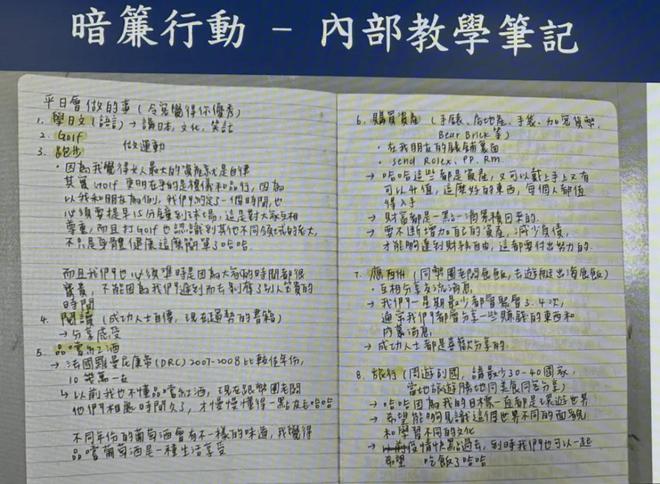 暗簾行動 - 內部教學筆記
平日會做的事 (令客覺得你優秀)
1. 學日文 (語言) → 講日本, 文化, 笑話
2. Golf
3. 跑步 做運動
· 因為我覺得女人最大的資產就是自律
其實 Golf 更明在乎的是禮儀和品行, 因為
以我和朋友為例, 我們約了一個時間, 也
必須要提早15分鐘到球場, 這是對大家互相
尊重, 而且打Golf也認識到其他不同領域的能人,
不只是身體健康這麼簡單了哈哈.
而且我們也必須準時是因為大家的時間都很
寶貴, 不能因為我們遲到而去剝奪了別人寶貴的
時間
4. 閱讀 (成功人士自傳, 現在趨勢的書籍)
→ 分享感受
5. 品嚐紅酒
→ 法國羅曼尼康帝(DRC) 2007-2008 比較佳年份,
10幾萬一支
→ 以前我也不懂品嚐紅酒, 現在跟幫團老闆
他們相處時間久了, 才慢慢懂得一點點哈哈
不同年份的葡萄酒會有不一樣的味道, 我覺得
品嚐葡萄酒是一種生活享受
6. 購買資產 (手錶, 房地產, 手袋, 加密貨幣,
Bear Brick 等)
· 在我朋友的錶舖裏面
· send Rolex, PP, RM
→ 哈哈這些都是資產, 又可以戴上手上又有
可以升值, 這麼好的東西, 每個人都值
得入手
→ 財富都是一點一滴累積回來的.
→ 要不斷增加自己的資產, 減少負債,
才能夠達到財務自由, 這都要付出努力的.
7. 應酬 (同幫團老闆食飯, 去遊艇出海食飯)
· 互相分享交流消息
→ 我們一星期最少都會聚會 3、4次,
通常我們都會分享一些賺錢的東西和
內幕消息,
→ 成功人士都是喜歡分享的.
8. 旅行 (周遊列國, 講最少30-40國家,
當地旅遊勝地同美食同客分享)
→ 哈哈因為我的目標一直都是環遊世界
→ 希望能夠見識這個世界不同的面貌
和學習不同的文化
→ 希望疫情快點過去, 到時我們也可以一起
吃飯了哈哈